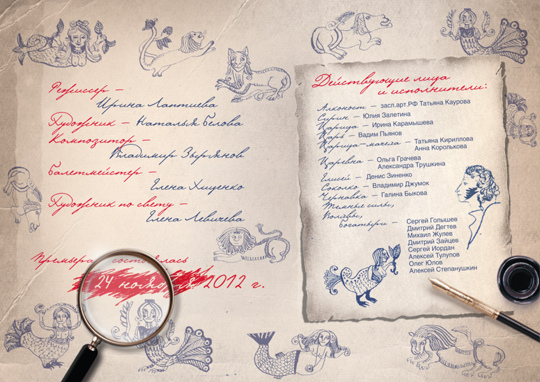 Режиссер –
Ирина Лаптиева
Художник – Наталья Белова
Композитор –
Владимир Зырянов
Балетмейстер –
Елена Хищенко
Художник по свету –
Елена Левичева
Премьера состоялась
24 ноября 2012 г.
Действующие лица
и исполнители:
Алконост – засл.арт.РФ Татьяна Каурова
Сирин – Юлия Залетина
Царица – Ирина Карамышева
Царь – Вадим Пьянов
Царица-мачеха – Татьяна Кириллова
Анна Королькова
Царевна – Ольга Грачёва
Александра Трушкина
Елисей – Денис Зиненко
Соколко – Владимир Джумок
Чернавка – Галина Быкова
Темные силы,
богатыри – Сергей Голышев
Дмитрий Дегтев
Михаил Жулев
Дмитрий Зайцев
Сергей Иордан
Алексей Тулупов
Олег Юлов
Алексей Степанушкин